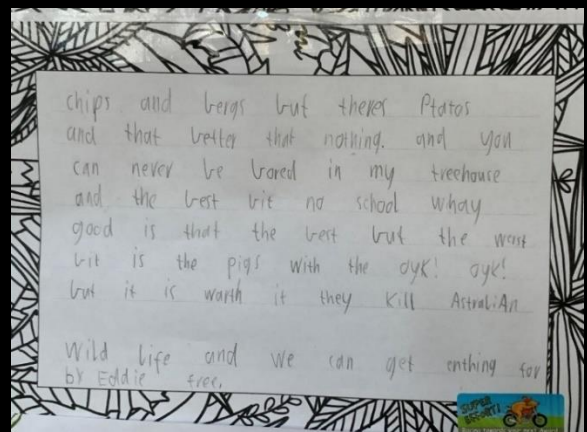 chips and bergs but theres Ptatos
and that better that nothing. and you
can never be bored in my treehouse
and the best bit no school whay
good is that the best but the worst
bit is the pigs with the oyk! oyk!
but it is worth it they kill AstraliAn
Wild life and we can get enthing for
by Eddie free.
SUPER
EFFORT!